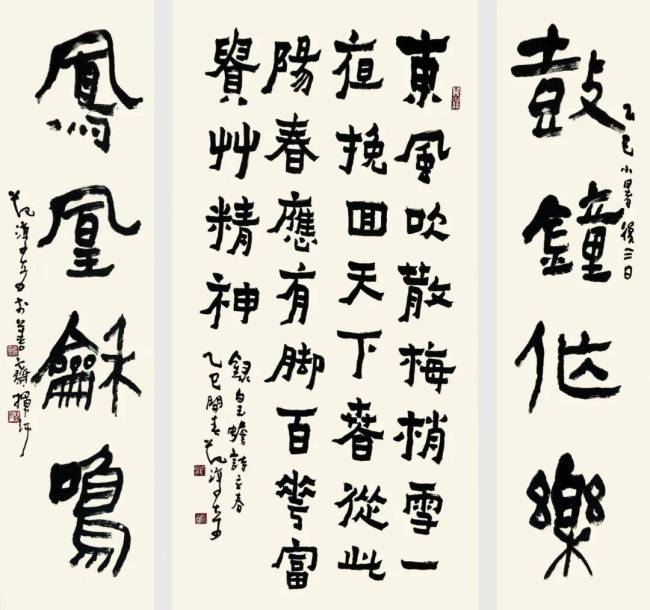 鼓鐘作樂
乙巳小暑後三日
東風吹散梅梢雪一
夜挽回天下春從此
陽春應有脚百花富
貴艸精神
錄白玉蟾詩立春
乙巳開春
鳳凰龢鳴
揮汗